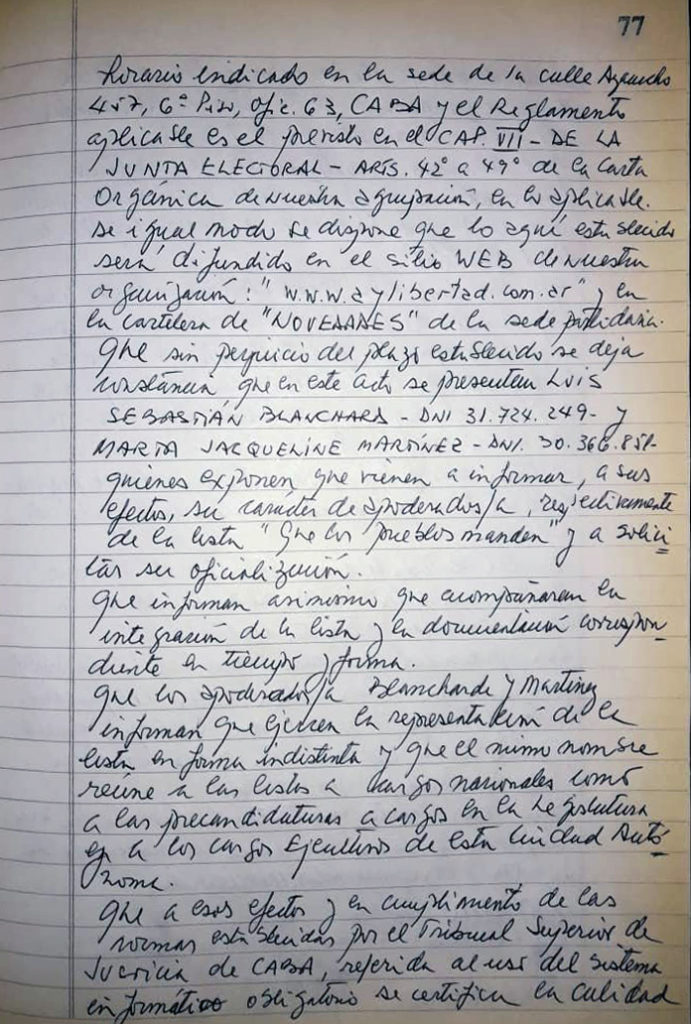 77
horario indicado en la sede de la calle Ayacucho
457, 6º Piso, Ofic. 63, CABA y el Reglamento
aplicable es el previsto en el CAP. VII - DE LA
JUNTA ELECTORAL - ARTS. 42º a 49º de la Carta
Orgánica de nuestra agrupación, en lo aplicable.
De igual modo se dispone que lo aquí establecido
será difundido en el sitio WEB de nuestra
organización: "w.w.w.aylibertad.com.ar" y en
la cartelera de "NOVEDADES" de la sede partidaria.
Que sin perjuicio del plazo establecido se deja
constancia que en este acto se presentan Luis
SEBASTIÁN BLANCHARD - DNI 31.724.249- y
MARTA JACQUELINE MARTÍNEZ - DNI. 30.366.851-
quienes exponen que vienen a informar, a sus
efectos, su carácter de apoderados/a, respectivamente
de la lista "Que los pueblos manden" y a solici
tar su oficialización.
Que informan asimismo que acompañaran la
integración de la lista y la documentación correspon
diente en tiempo y forma.
Que los apoderados/a Blancharde y Martínez
informan que ejercen la representación de la
lista en forma indistinta y que el mismo nombre
reúne a las listas a cargos nacionales como
a las precandidaturas a cargos en la Legislatura
y a los cargos Ejecutivos de esta Ciudad Autó
noma.
Que a esos efectos y en cumplimiento de las
normas establecidas por el Tribunal Superior de
Justicia de CABA, referida al uso del sistema
informático obligatorio se certifica la calidad